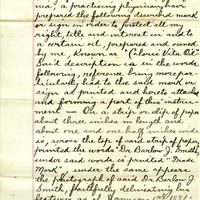 ma, a practicing physician, have
prepared the following described mark
or sign in order to protect all my
right, title and interest in and to
a certain oil, prepared and owned
by me, known as "Caloric Vita Oil"
Said description is in the words
following, reference being more par-
ticularly had to the said mark or
sign as printed, and hereto attached
and forming a part of this instru-
ment — On a strip or slip of paper
about three inches in length and
about one and one half inches wide
is, across the top of said strip of paper,
printed the words "Dr Barlow J. Smith's,
under said words is printed "Trade
Mark" under the same appears
the photograph of said Dr Barlow J.
Smith, faithfully delineating his
features as of January 1881